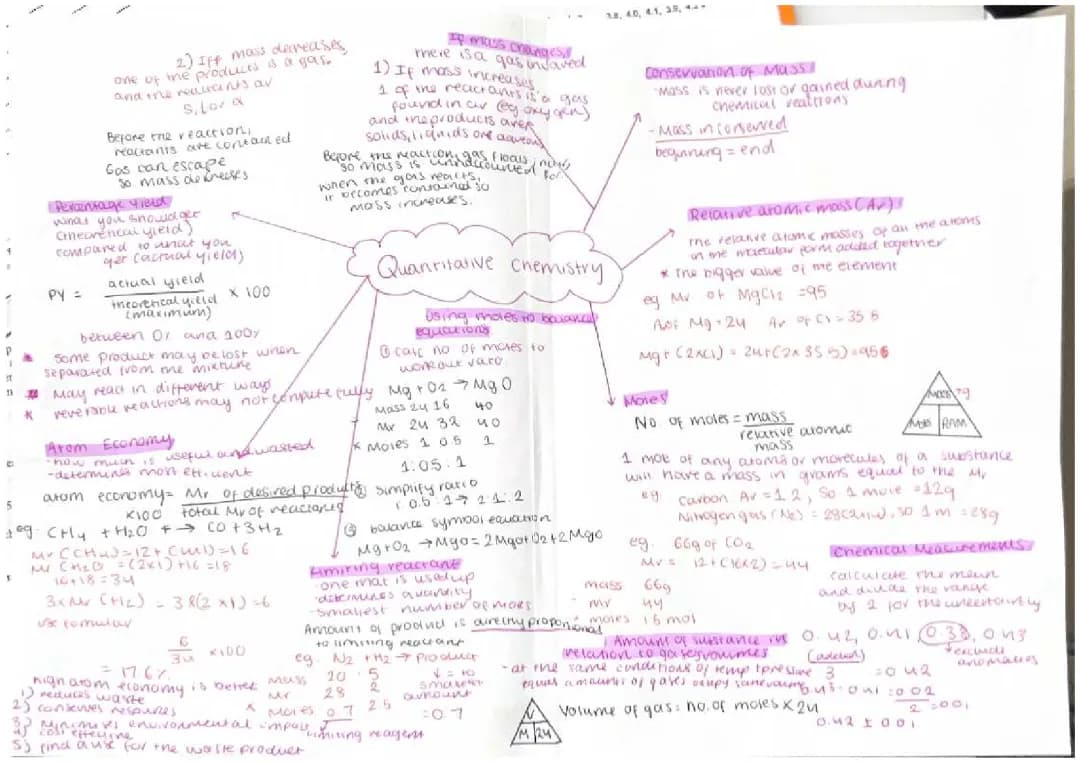 3.8, 4.0, 4.1, 3.9, 4.2
2) Iff mass decreases,
one of the products is a gas.
and the reactants av
s, l or a
Before the reaction,
reactants are contained
Gas can escape
so mass decreases
If mass changes,
there is a gas involved
1) If mass increases,
1 of the reactants is a gas
found in air (eg oxygen)
and the products are
solids, liquids or aqueous
Before the reaction, gas floats
so mass is unaccounted for.
when the gas reacts,
it becomes contained so
mass increases.
Conservation of Mass
-Mass is never lost or gained during
chemical reactions
- Mass in conserved
beginning = end
Percentage yield
what you should get
(theoretical yield)
compared to what you
get (actual yield)
PY = actual yield
theoretical yield × 100
(maximum)
between 0% and 100%
* some product may be lost when
separated from the mixture
* May react in different ways
* reversible reactions may not compute fully
Quantitative Chemistry
Relative atomic mass (Ar)
The relative atomic masses of all the atoms
in the molecular form added together
* The bigger value of the element
eg Mr of MgCl2 = 95
Ar of Mg = 24 Ar of Cl = 35 5
Mg + (2×Cl) = 24 + (2×35 5) = 95
Using moles to balance
equations
① calc no of moles to
work out ratio
Mg + O2 → MgO
Mass 24 16 40
Mr 24 32 40
* Moles 1 0 5 1
1 : 0 5 : 1
② simplify ratio
1 0 5 : 1 → 2 : 1 : 2
③ balance symbol equation
Mg + O2 → MgO = 2Mg + O2 → 2MgO
Atom Economy
-how much is useful and wasted
-determines most efficient
atom economy = Mr of desired products
×100 total Mr of reactants
eg. CH4 + H2O → CO + 3H2
Mr (CH4) = 12 + (4×1) = 16
Mr (H2O) = (2×1) + 16 = 18
16 + 18 = 34
3 × Mr (H2) = 3 × (2 × 1) = 6
use formula
6
34 × 100
= 17 6%
high atom economy is better
1) reduces waste
2) conserves resources
3) Minimises environmental impact
4) cost effective
5) find a use for the waste product
Limiting reactant
-one that is used up
-determines quantity
-smallest number of moles
Amount of product is directly proportional
to limiting reactant
eg. N2 + H2 → Product
Mass 20 5
Mr 28 2
* Moles 0 7 2 5
↓ = to
smallest
amount
= 0 7
limiting reagent
Moles
No. of moles = mass
relative atomic
mass
mass g
Moles RAM
1 mol of any atoms or molecules of a substance
will have a mass in grams equal to the Mr
eg Carbon Ar = 12, so 1 mole = 12g
Nitrogen gas (N2) = 28 (2×14), so 1m = 28g
eg. 66g of CO2
Mr = 12 + (16×2) = 44
mass 66g
Mr 44
moles 1 5 mol
Amount of substance in
relation to gas volumes
- at the same conditions of temp + pressure
equal amounts of gases occupy same volume
Volume of gas = no. of moles × 24
V
M 24
Chemical Measurements
calculate the mean
and divide the range
by 2 for the uncertainty
0.42, 0.41, 0.38, 0.43
(added)
3 = 0 42
exclude
anomalies
0 43 - 0 41 = 0 02
2 = 0 01
0.42 ± 0 01